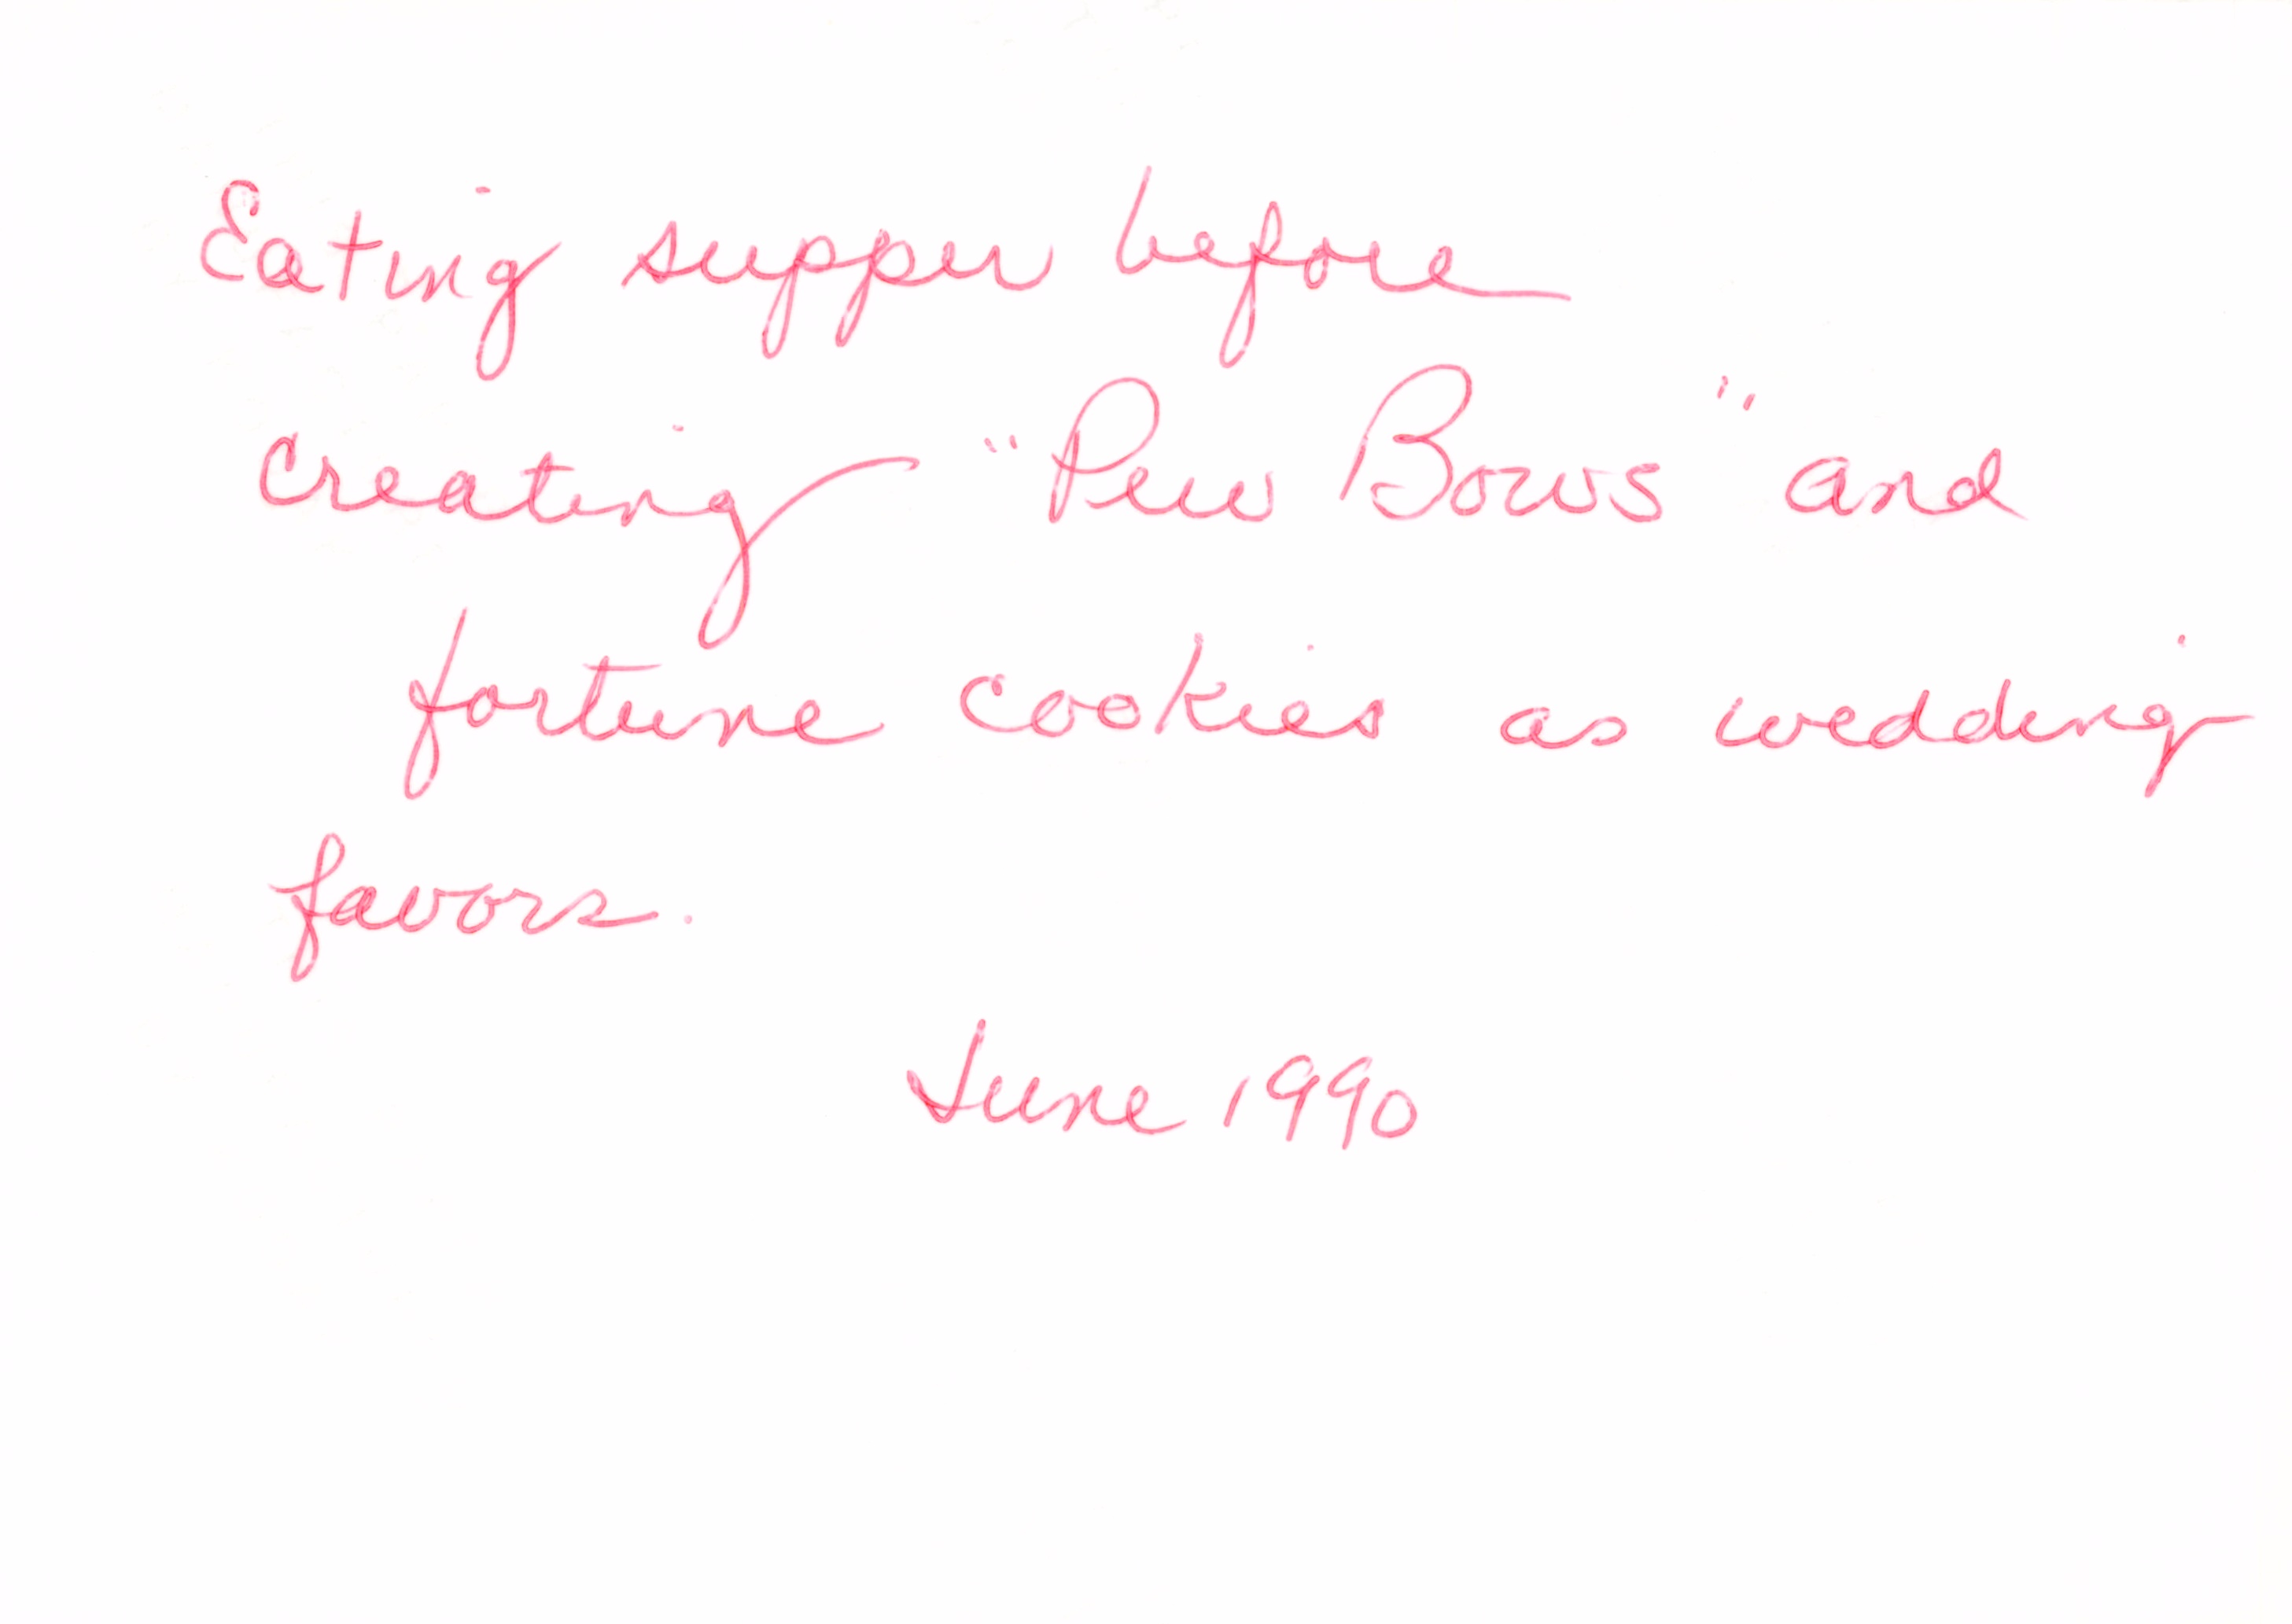 Eating supper before
creating "Pew Bows" and
fortune cookies as wedding
favors.
June 1990